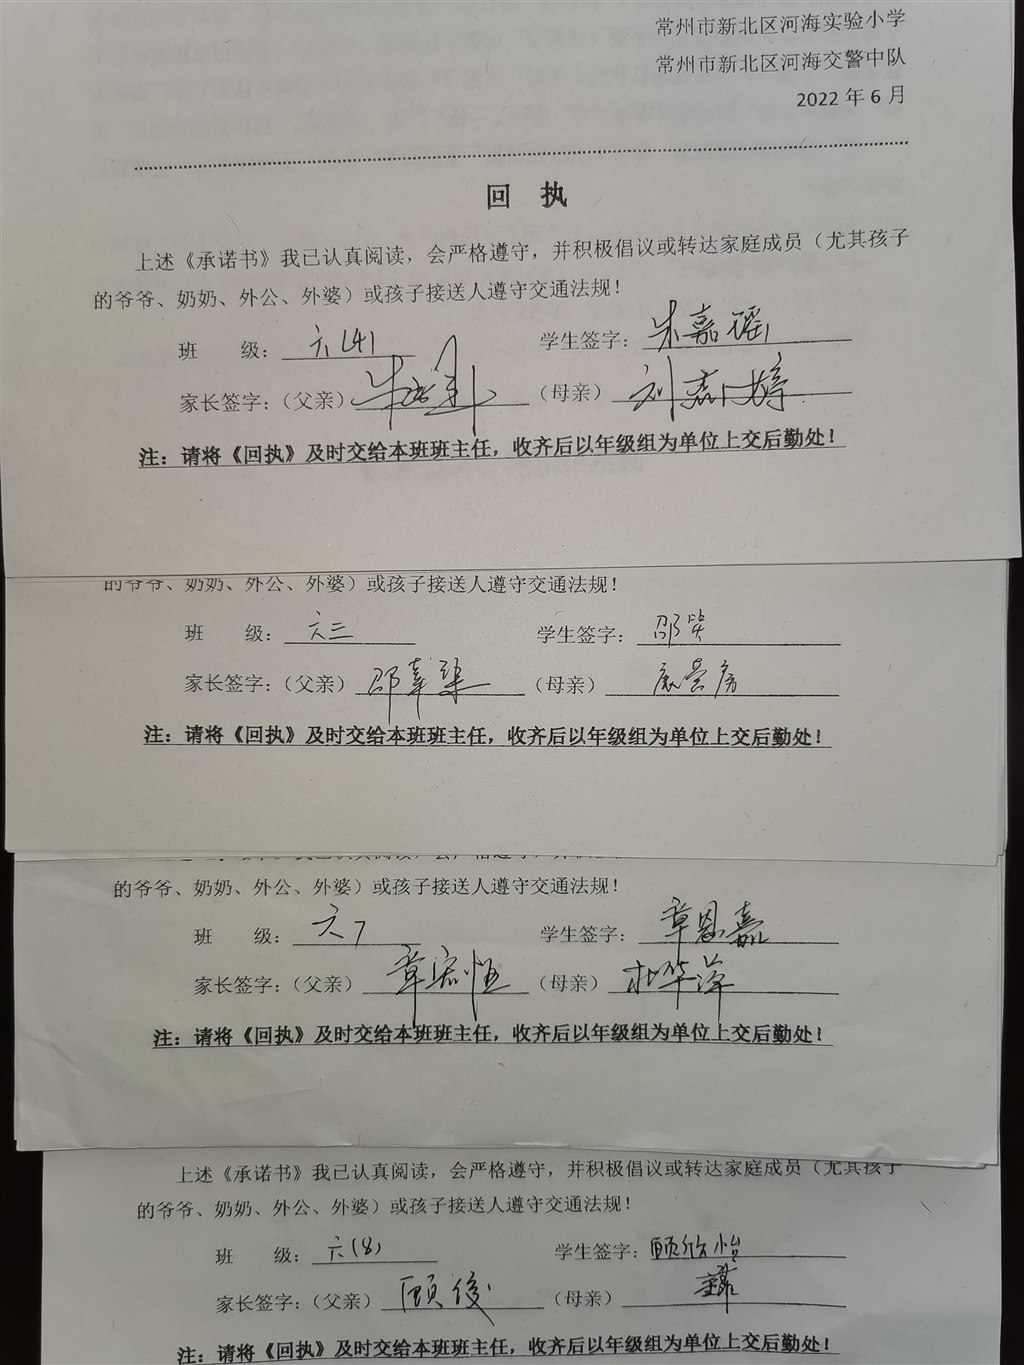 常州市新北区河海实验小学
常州市新北区河海交警中队
2022 年 6 月
回 执
上述《承诺书》我已认真阅读，会严格遵守，并积极倡议或转达家庭成员（尤其孩子
的爷爷、奶奶、外公、外婆）或孩子接送人遵守交通法规！
班 级：六(4) 学生签字：朱嘉瑶
家长签字：（父亲）朱 （母亲）刘婷
注：请将《回执》及时交给本班班主任，收齐后以年级组为单位上交后勤处！
的爷爷、奶奶、外公、外婆）或孩子接送人遵守交通法规！
班 级：六三 学生签字：邵
家长签字：（父亲）邵 （母亲）
注：请将《回执》及时交给本班班主任，收齐后以年级组为单位上交后勤处！
的爷爷、奶奶、外公、外婆）或孩子接送人遵守交通法规！
班 级：六7 学生签字：章恩嘉
家长签字：（父亲）章宏恒 （母亲）杜华萍
注：请将《回执》及时交给本班班主任，收齐后以年级组为单位上交后勤处！
上述《承诺书》我已认真阅读，会严格遵守，并积极倡议或转达家庭成员（尤其孩子
的爷爷、奶奶、外公、外婆）或孩子接送人遵守交通法规！
班 级：六(8) 学生签字：顾欣怡
家长签字：（父亲）顾俊 （母亲）
注：请将《回执》及时交给本班班主任，收齐后以年级组为单位上交后勤处！